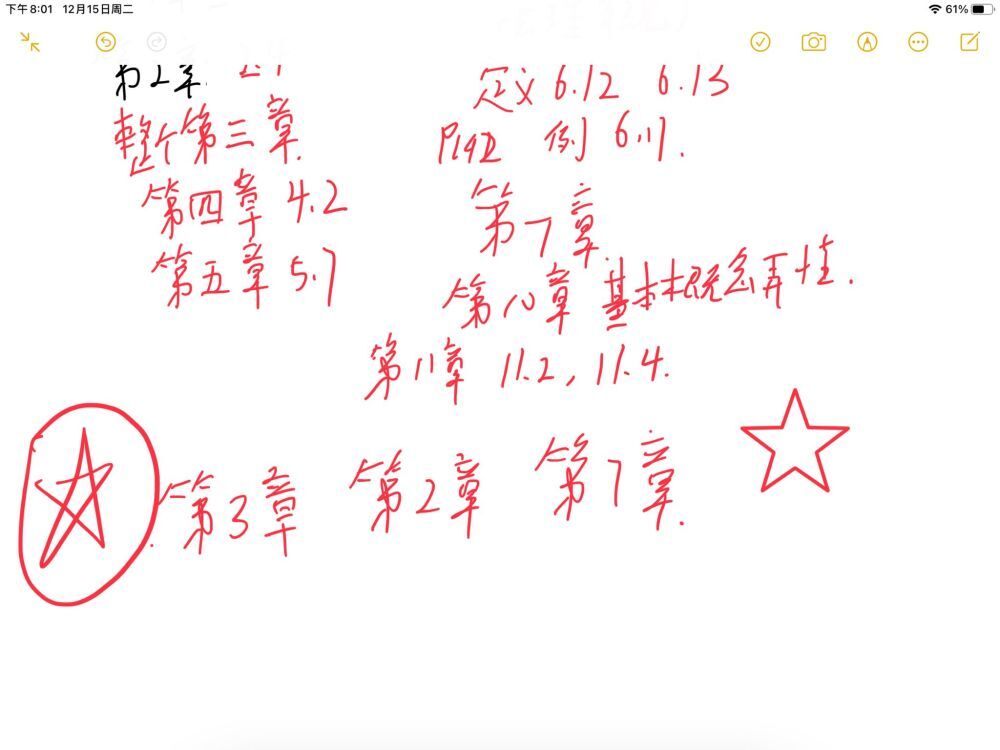 下午8:01 12月15日周二
61%
第2章 2.1
整个第三章.
第四章 4.2
第五章 5.7
定义 6.12 6.13
P192 例 6.17.
第7章.
第10章 基本概念弄懂.
第11章 11.2, 11.4.
第3章 第2章 第7章.